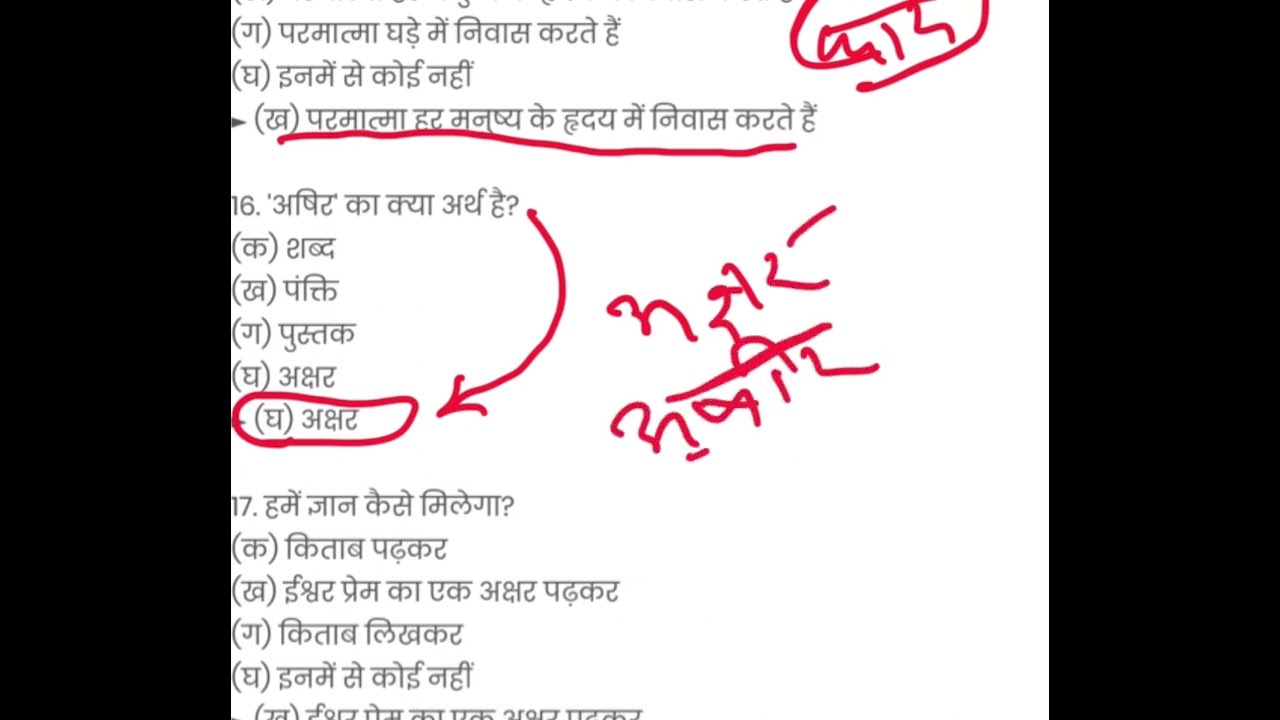 (ग) परमात्मा घड़े में निवास करते हैं
(घ) इनमें से कोई नहीं
► (ख) परमात्मा हर मनुष्य के हृदय में निवास करते हैं
16. 'अषिर' का क्या अर्थ है?
(क) शब्द
(ख) पंक्ति
(ग) पुस्तक
(घ) अक्षर
► (घ) अक्षर
अक्षर
अषिर
17. हमें ज्ञान कैसे मिलेगा?
(क) किताब पढ़कर
(ख) ईश्वर प्रेम का एक अक्षर पढ़कर
(ग) किताब लिखकर
(घ) इनमें से कोई नहीं
► (ख) ईश्वर प्रेम का एक अक्षर पढ़कर